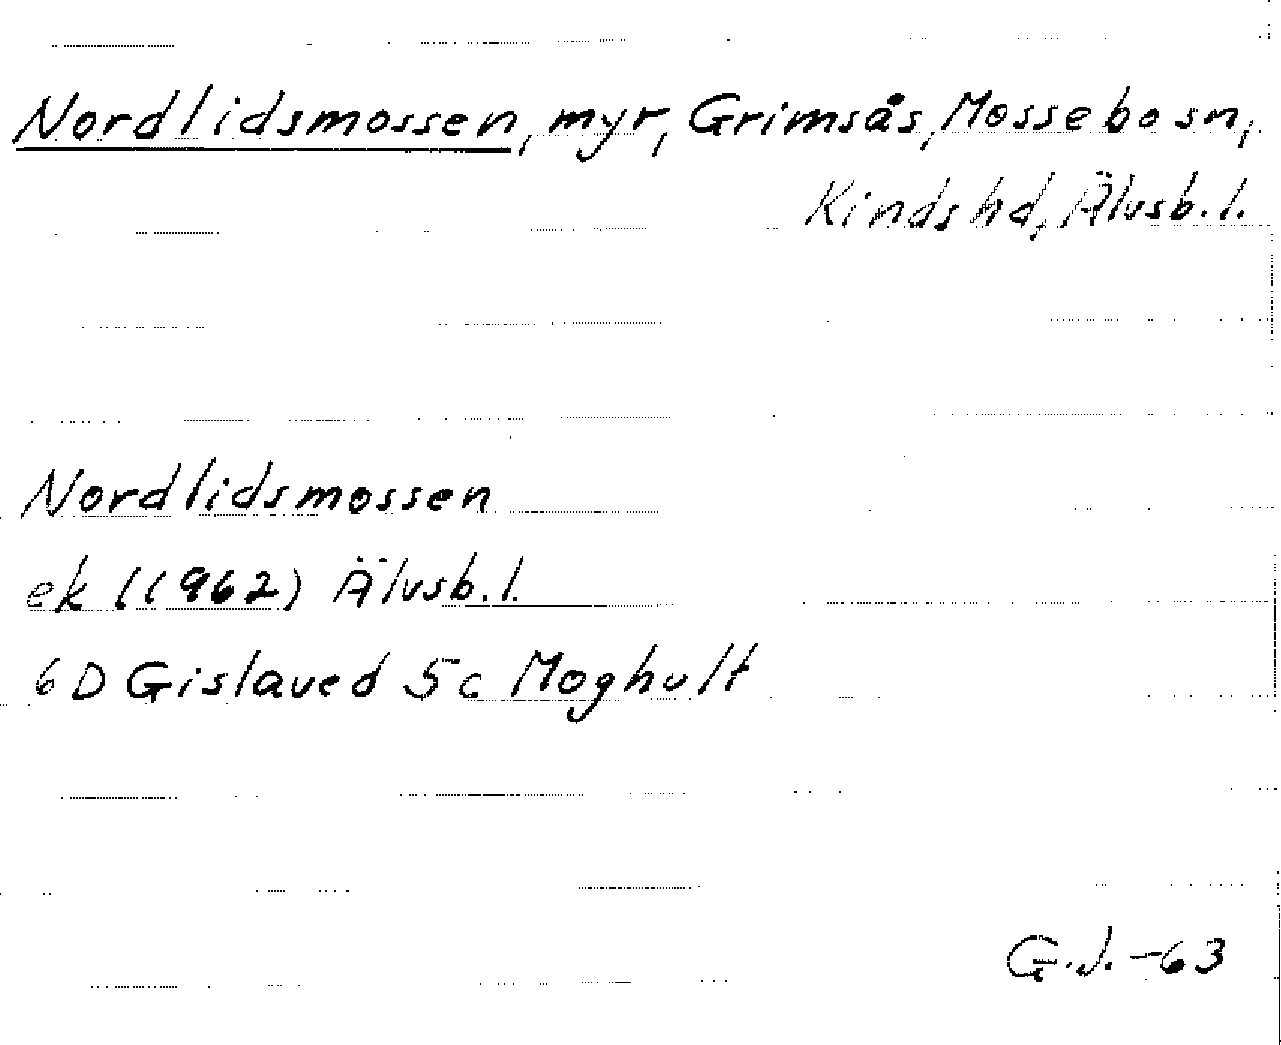 Nordlidsmossen, myr, Grimsås, Mossebo sn,
Kinds hd, Älvsb. l.
Nordlidsmossen
ek (1962) Älvsb. l.
6D Gislaved 5c Moghult
G.J. -63